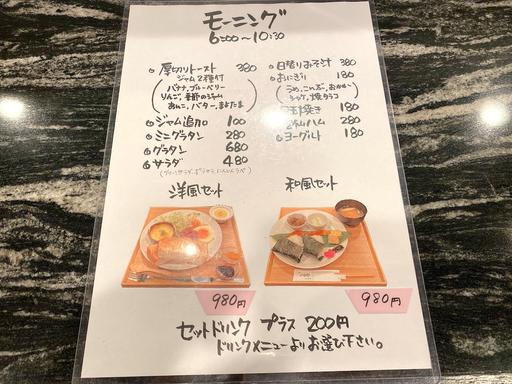 モーニング
6:00～10:30
厚切りトースト 380
ジャム2種付
バナナ、ブルーベリー
りんご、季節のジャム
あんこ、バター、
ジャム追加 100
ミニグラタン 280
グラタン 680
サラダ 480
日替りおみそ汁 380
おにぎり 180
うめ、こんぶ、おかか
シャケ、焼タラコ
玉子焼き 180
ハム 280
ヨーグルト 180
洋風セット
和風セット
980円
980円
セットドリンク プラス 200円
ドリンクメニューよりお選び下さい。